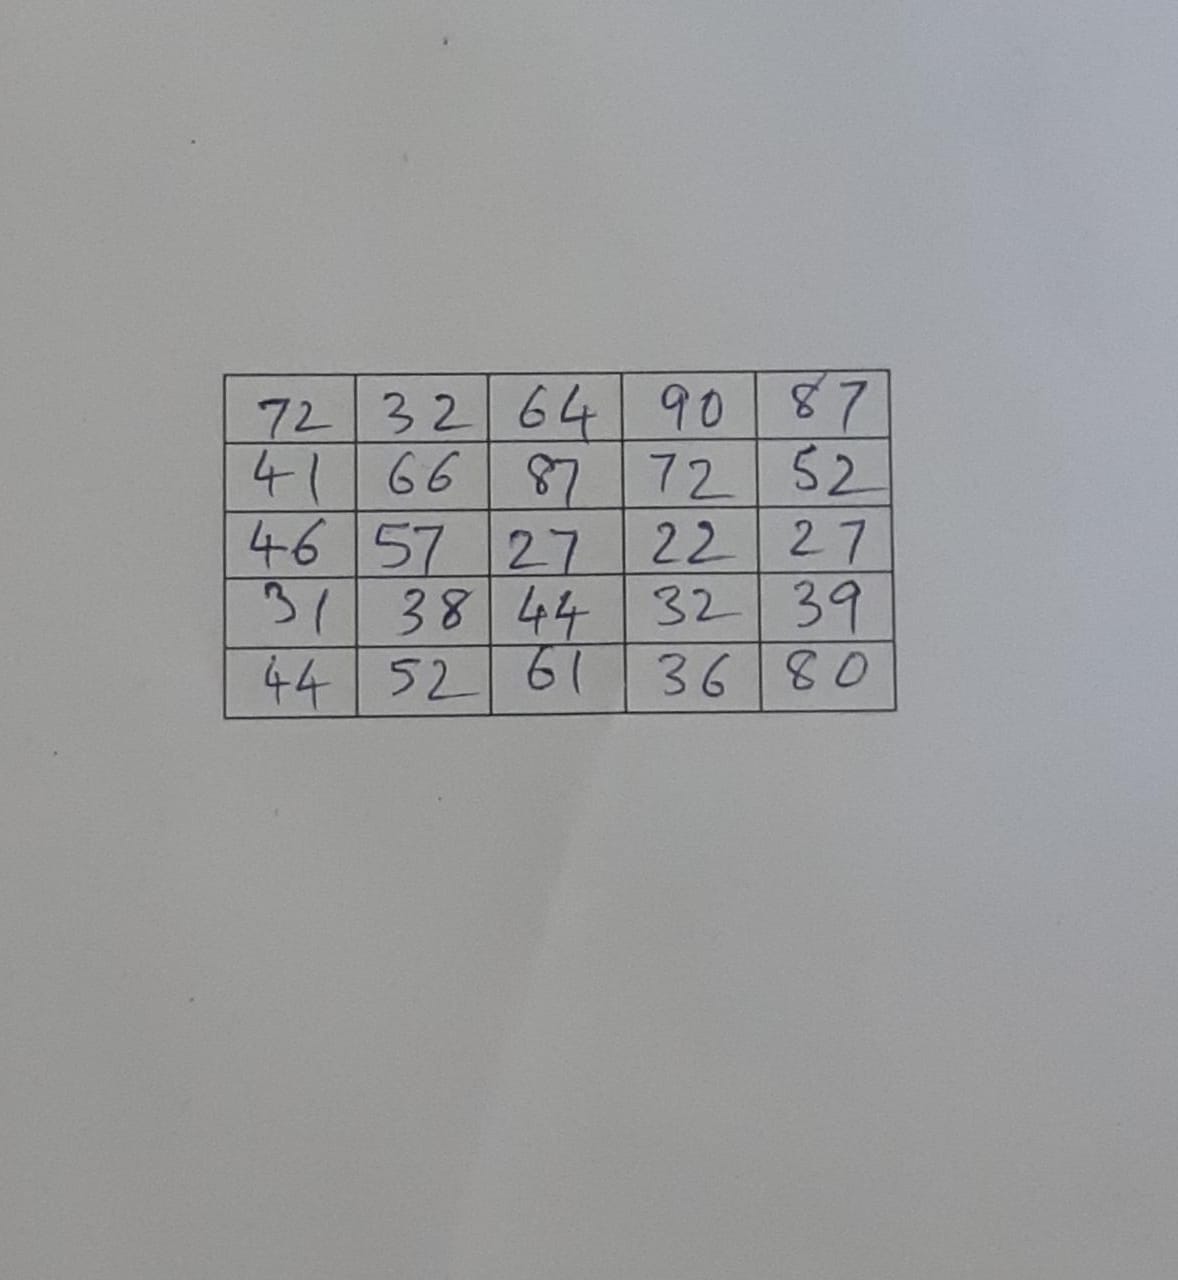 72 32 64 90 87
41 66 87 72 52
46 57 27 22 27
31 38 44 32 39
44 52 61 36 80